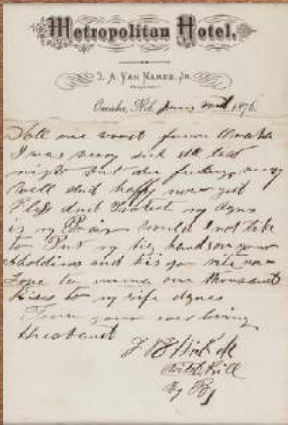 Metropolitan Hotel.
J. A. VAN NAMEE, JR.
PROPRIETOR
Omaha, Neb. 1876
one from Omaha
I was very sick all last
night but am feeling very
well and happy now god
Bless and Protect my Agnes
is my Would I not like
to Put my big hands on your
Sholdiers and kis you rite now
Love to one thousand
Kises to my wife Agnes
From your ever loving
Husband
J B Hickok
Wild Bill
By By